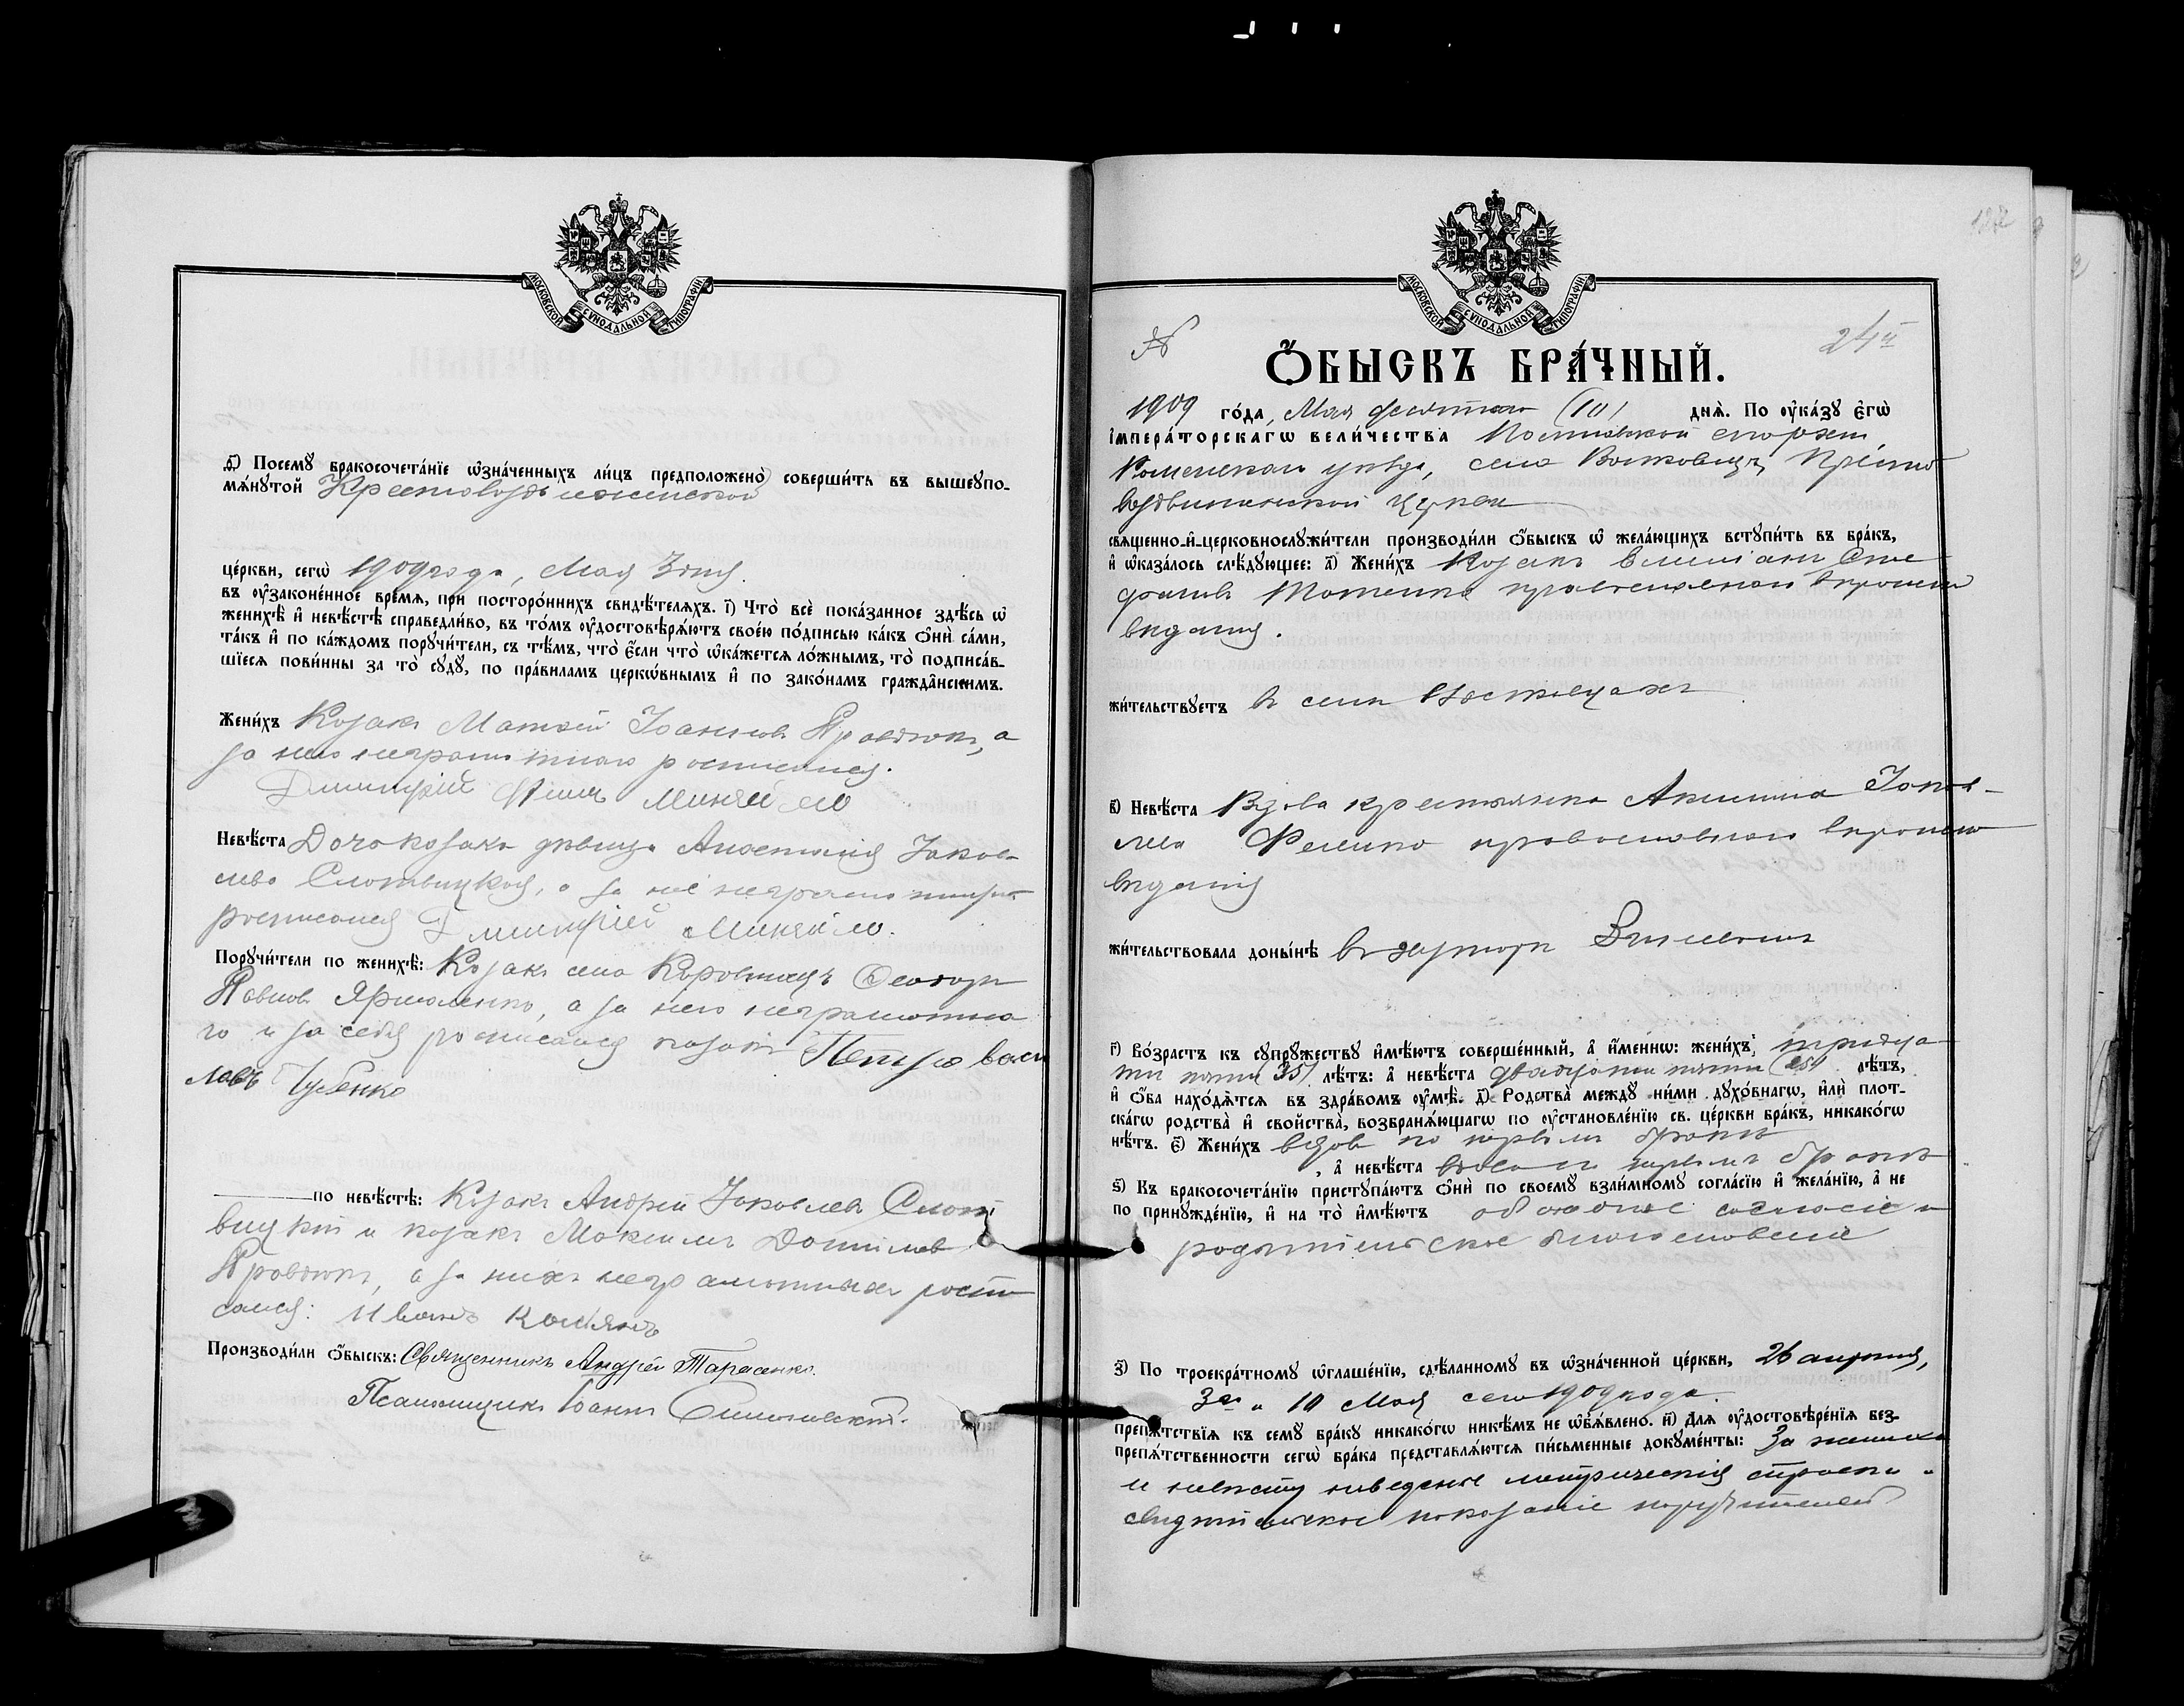 МОСКОВСКОЙ СѴНОДАЛЬНОЙ ТИПОГРАФІИ
д҃і) Посемꙋ̀ бракосочета́нїе ѡ҆зна́ченныхъ ли́цъ предположено̀ соверши́ть въ вышеꙋпо-
мѧ́нꙋтой Крестовоздвиженской
це́ркви, сегѡ̀ 1909 года, Мая 3 дня.
въ ᲂу҆зако́ненное вре́мѧ, при посторо́ннихъ свидѣ́телѧхъ. і҃) Что̀ всѐ пока́занное здѣ́сь ѡ҆
женихѣ̀ и҆ невѣ́стѣ справедли́во, въ то́мъ ᲂу҆достовѣрѧ́ютъ свое́ю по́дписью ка́къ ѻ҆нѝ са́ми,
та́къ и҆ по ка́ждомъ порꙋчи́тели, съ тѣ́мъ, что̀ є҆́сли что̀ ѡ҆ка́жетсѧ ло́жнымъ, то̀ подписа́в-
шїесѧ пови́нны за то̀ сꙋдꙋ̀, по пра́виламъ церкѡ́внымъ и҆ по зако́намъ гражда̑нскимъ.
Жени́хъ Козакъ Матѳей Іоанновъ Правдюкъ, а
за него неграмотнаго росписался.
Дмитрій Миняйло
Невѣ́ста Дочь козака девица Анастасія Іаков-
лева Слотвицкая, а за нее неграмотную
росписался Дмитрій Миняйло.
Порꙋчи́тели по женихѣ̀: Козакъ села Коровинецъ
Павловъ Ярмоленко, а за него неграмотна
го и за себя росписался козакъ Петро Васи
левъ Губенко
по невѣ́стѣ: Козакъ Андрей Іаковлевъ Слот
вицкій и козакъ Максимъ Даниловъ
Правдюкъ, а за нихъ неграмотныхъ роспи
сался: Иванъ
Производи́ли ѻ҆́быскъ: Священникъ Андрей Тарасенко.
Псаломщикъ Іоаннъ
МОСКОВСКОЙ СѴНОДАЛЬНОЙ ТИПОГРАФІИ
№ 24й
Ѻ҆́БЫСКЪ БРА́ЧНЫЙ.
1909 го́да, Мая десятаго (10) днѧ̀. По ᲂу҆ка́зꙋ є҆гѡ̀
і҆мпера́торскагѡ вели́чества Полтавской епархіи,
Роменскаго уѣзда, села Волковецъ, Кресто
воздвиженской церкви
свѧще́нно-и҆-церковнослꙋжи́тели производи́ли ѻ҆́быскъ ѡ҆ жела́ющихъ встꙋпи́ть въ бра́къ,
и҆ ѡ҆каза́лось слѣ́дꙋющее: а҃) Жени́хъ Козакъ Емиліанъ Сте
фановъ православнаго вѣроиспо
вѣданія.
жи́тельствꙋетъ въ селѣ
в҃) Невѣ́ста Вдова крестьянка Акилина Іаков-
лева православнаго вѣроиспо
вѣданія
жи́тельствовала доны́нѣ въ хуторѣ
г҃) Во́зрастъ къ сꙋпрꙋ́жествꙋ и҆мѣ́ютъ соверше́нный, а҆ и҆́меннѡ: жени́хъ тридца
ти пяти (35) лѣ́тъ: а҆ невѣ́ста двадцати пяти (25) лѣ́тъ,
и҆ ѻ҆́ба нахо́дѧтсѧ въ здра́вомъ ᲂу҆мѣ̀. д҃) Родства̀ междꙋ̀ ни́ми дꙋхо́внагѡ, и҆лѝ плот-
ска́гѡ родства̀ и҆ сво́йства̀, возбранѧ́ющагѡ по ᲂу҆становле́нїю св. це́ркви бра́къ, никако́гѡ
нѣ́тъ. є҃) Жени́хъ вдовъ по первом бракѣ
, а҆ невѣ́ста вдова по первомъ бракѣ
ѕ҃) Къ бракосочета́нїю пристꙋпа́ютъ ѻ҆нѝ по своемꙋ̀ взаи́мномꙋ согла́сїю и҆ жела́нїю, а҆ не
по принꙋжде́нїю, и҆ на то̀ и҆мѣ́ютъ обоюдное согласіе и
родительское благословеніе
з҃) По троекра́тномꙋ ѡ҆глаше́нїю, сдѣ́ланномꙋ въ ѡ҆зна́ченной це́ркви, 26 апреля,
3го и 10 Мая сего 1909 года
препѧ́тствїѧ къ семꙋ̀ бра́кꙋ никако́гѡ никѣ́мъ не ѡ҆бъѧ́влено. и҃) Длѧ̀ ᲂу҆достовѣре́нїѧ без-
препѧ́тственности сегѡ̀ бра́ка представлѧ́ютсѧ пи́сьменные докꙋме́нты: За жениха
и невѣсту наведеные метрическія справки и
свидѣтельское показаніе поручителей